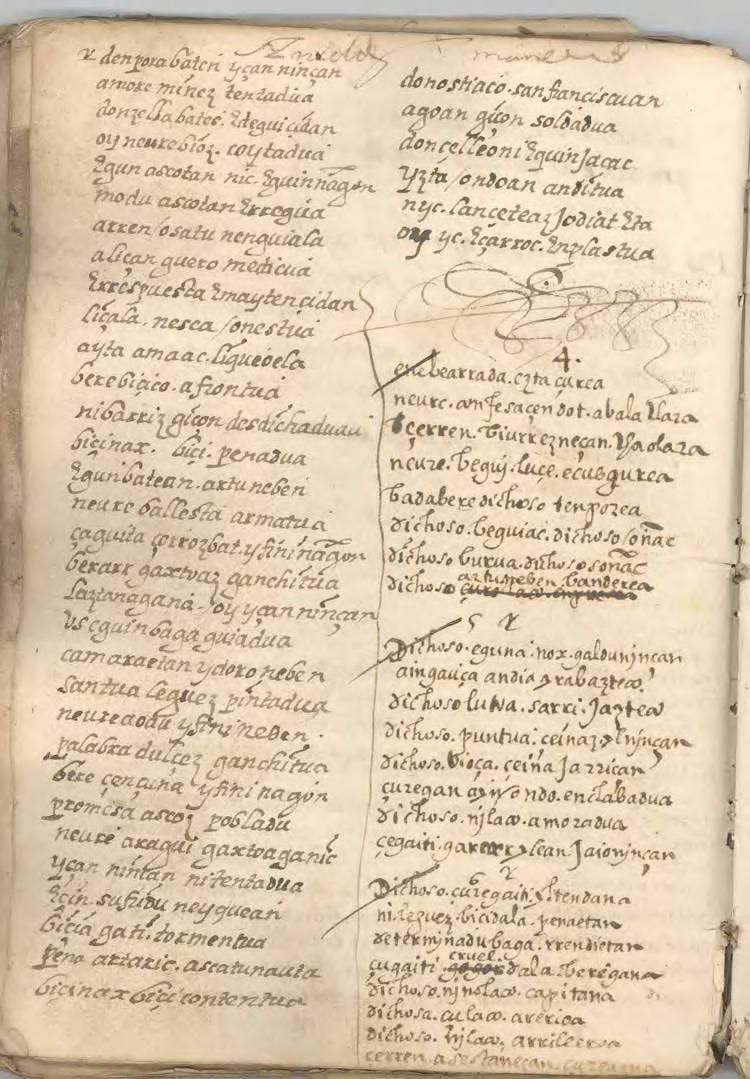 denpora bateri yçan ninçan
amore minez tentadua
donzella batec. Edeguiçidan
oy neure bioz. coytadua
Egun ascotan nic. Eguinnagon
modu ascotan Erregua
arren / osatu nenguiala
aliçan guero medicua
Errespuesta Emaytençidan
liçala. nesca / onestua
ayta amaac. ligueoela
bere biçico. afrontua
nibarriz giçon desdichaduau
biçinax. biçi. penadua
Egun batean. artu neben
neure ballesta armatua
çaguita çorrozbat. yfininagon
berarr gaxtoaz ganchitua
laztanagana. oy yçan ninçan
vseguin baga guiadua
camaraetan ydoro neben
santua leguez pintadua
neure aodu yfinineben.
palabra dulçez ganchitua
bere çençuna yfini nagon
promesa ascoz pobladu
neure aragui gaxtoaganic
yçan nintan ni tentadua
Eçin. sufridu neyquean
biçia gati. tormentua
pena artaric. ascatunauta
biçinax biçi contentua
donostiaco. san franciscuan
agoan giçon soldadua
donçelleoni Eguin jacac
yzta / ondoan anditua
nyc. lançeteaz Jodiat Eta
oyc. Eçarroc. Enplastua
4.
ene bearrada. ezta çurea
neurc. confesaçen dot. abala llara
çerren. biurrezneçan. yaolara
neure. beguy. luçe. ecusgurea
badabere dichoso tenporea
dichoso. beguiac. dichoso / oñac
dichoso burua. dichoso soñac
dichoso artu neben banderea
5
Dichoso. eguna. nox. galduninçan
ain gauça andia yrabaztea
dichoso lutoa. sarri. Jaztea
dichoso. puntua. ceinaz ylninçan
dichoso. bioça. ceina Jarrican
çuregan ayn / ondo. enclabadua
dichoso. nilaco. amoradua
çegaiti. ylean Jaioninçan
6
Dichoso. çuregaiti. yltendana
ni. leguez. bicidala. penaetan
determinadu baga. rrendietan
çugaiti cruel dala. beregana
dichoso. ninolaco. capitana
dichosa. culaco. arerioa
dichoso. nilaco. arrileeroa
çerren. asestaneçan. çureagana